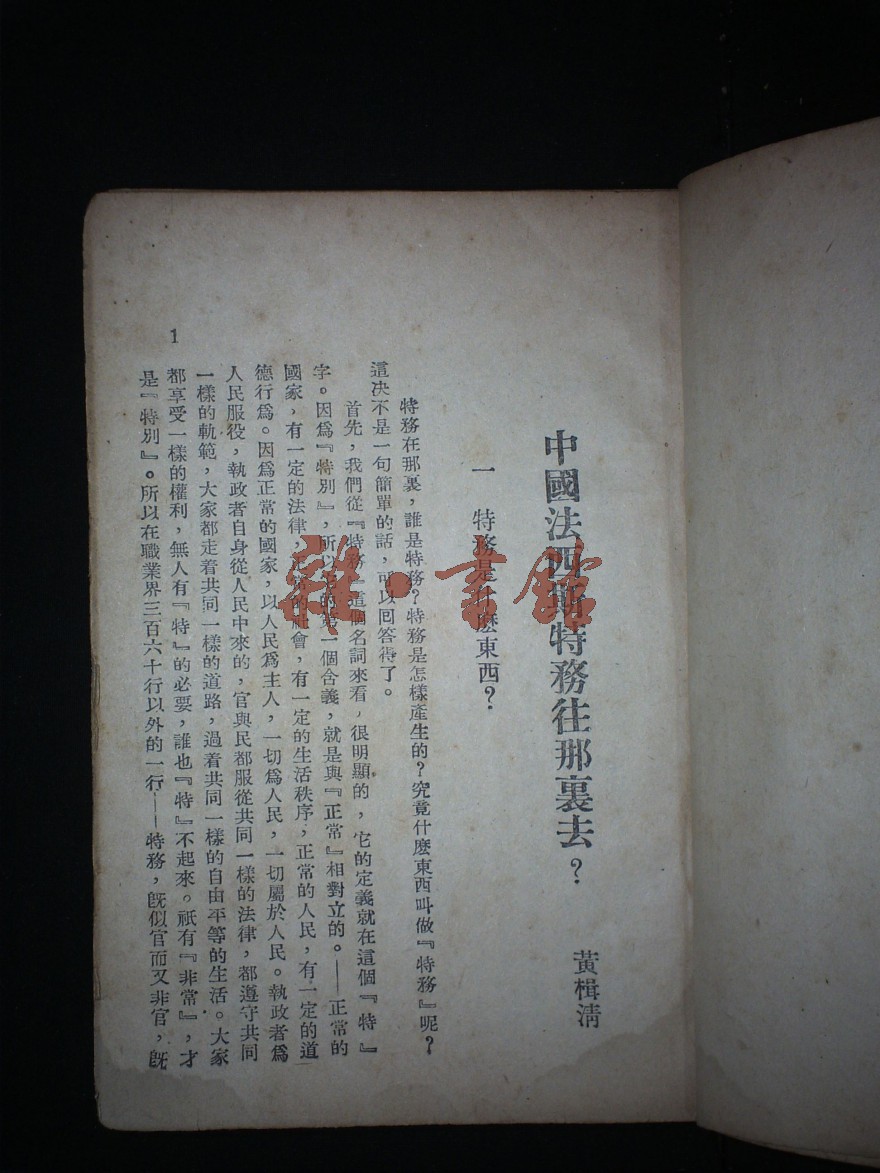 中國法西斯特務往那裏去？
黃楫清
一　特務是什麽東西？
特務在那裏，誰是特務？特務是怎樣產生的？究竟什麽東西叫做『特務』呢？
這决不是一句簡單的話，可以回答得了。
首先，我們從『特務』這個名詞來看，很明顯的，它的定義就在這個『特』
字。因爲『特別』，所以它的第一個含義，就是與『正常』相對立的。——正常的
國家，有一定的法律，正常的社會，有一定的生活秩序，正常的人民，有一定的道
德行爲。因爲正常的國家，以人民爲主人，一切爲人民，一切屬於人民。執政者爲
人民服役，執政者自身從人民中來的，官與民都服從共同一樣的法律，都遵守共同
一樣的軌範，大家都走着共同一樣的道路，過着共同一樣的自由平等的生活。大家
都享受一樣的權利，無人有『特』的必要，誰也『特』不起來。祇有『非常』，才
是『特別』。所以在職業界三百六十行以外的一行——特務，旣似官而又非官，旣
1
雜·書館